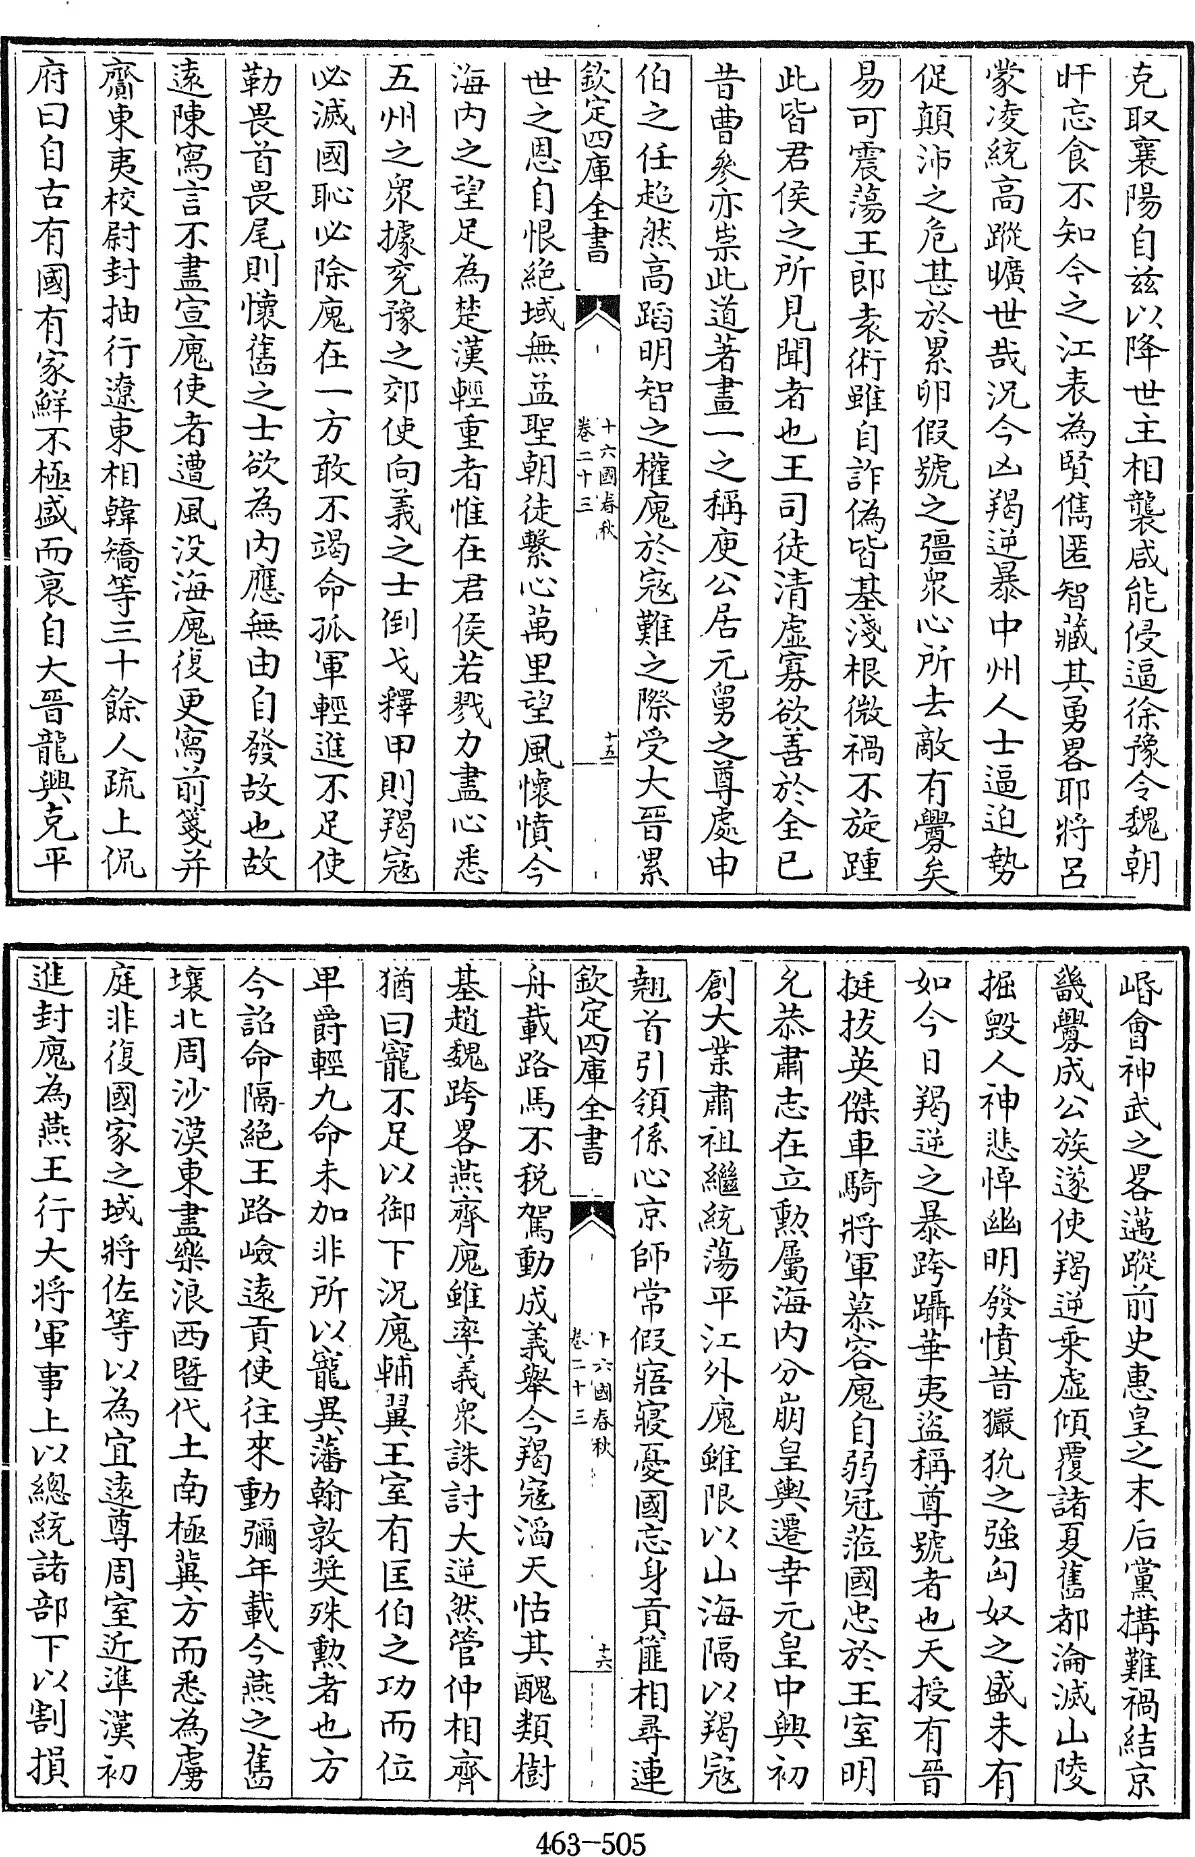 克取襄陽自兹以降世主相襲咸能侵逼徐豫令魏朝
旰忘食不知今之江表為賢儁匿智藏其勇畧耶將呂
蒙凌統高蹤曠世哉況今凶羯逆暴中州人士逼迫勢
促顛沛之危甚於累卵假號之彊衆心所去敵有釁矣
易可震蕩王郎袁術雖自詐偽皆基淺根微禍不旋踵
此皆君侯之所見聞者也王司徒清虚寡欲善於全已
昔曹參亦崇此道著畫一之稱庾公居元舅之尊處申
伯之任超然高蹈明智之權廆於寇難之際受大晉累
欽定四庫全書
十六國春秋
卷二十三
十五
世之恩自恨絶域無益聖朝徒繫心萬里望風懷憤今
海内之望足為楚漢輕重者惟在君侯若戮力盡心悉
五州之衆據兖豫之郊使向義之士倒戈釋甲則羯寇
必滅國恥必除廆在一方敢不竭命孤軍輕進不足使
勒畏首畏尾則懷舊之士欲為内應無由自發故也故
遠陳寫言不盡宣廆使者遭風没海廆復更寫前箋并
齎東夷校尉封抽行遼東相韓矯等三十餘人疏上侃
府曰自古有國有家鮮不極盛而衰自大晉龍興克平
崏會神武之畧邁蹤前史惠皇之末后黨搆難禍結京
畿釁成公族遂使羯逆乘虚傾覆諸夏舊都淪滅山陵
掘毁人神悲悼幽明發憤昔玁狁之強匈奴之盛未有
如今日羯逆之暴跨躡華夷盗稱尊號者也天授有晉
挺拔英傑車騎將軍慕容廆自弱冠蒞國忠於王室明
允恭肅志在立勲屬海内分崩皇輿遷幸元皇中興初
創大業肅祖繼統蕩平江外廆雖限以山海隔以羯寇
翹首引領係心京師常假寤寢憂國忘身貢篚相尋連
欽定四庫全書
十六國春秋
卷二十三
十六
舟載路馬不税駕動成義舉今羯寇滔天怙其醜類樹
基趙魏跨畧燕齊廆雖率義衆誅討大逆然管仲相齊
猶曰寵不足以御下況廆輔翼王室有匡伯之功而位
卑爵輕九命未加非所以寵異藩翰敦奬殊勲者也方
今詔命隔絶王路嶮遠貢使往來動彌年載今燕之舊
壤北周沙漠東盡樂浪西暨代土南極冀方而悉為虜
庭非復國家之域將佐等以為宜遠尊周室近準漢初
進封廆為燕王行大將軍事上以總統諸部下以割損
463-505